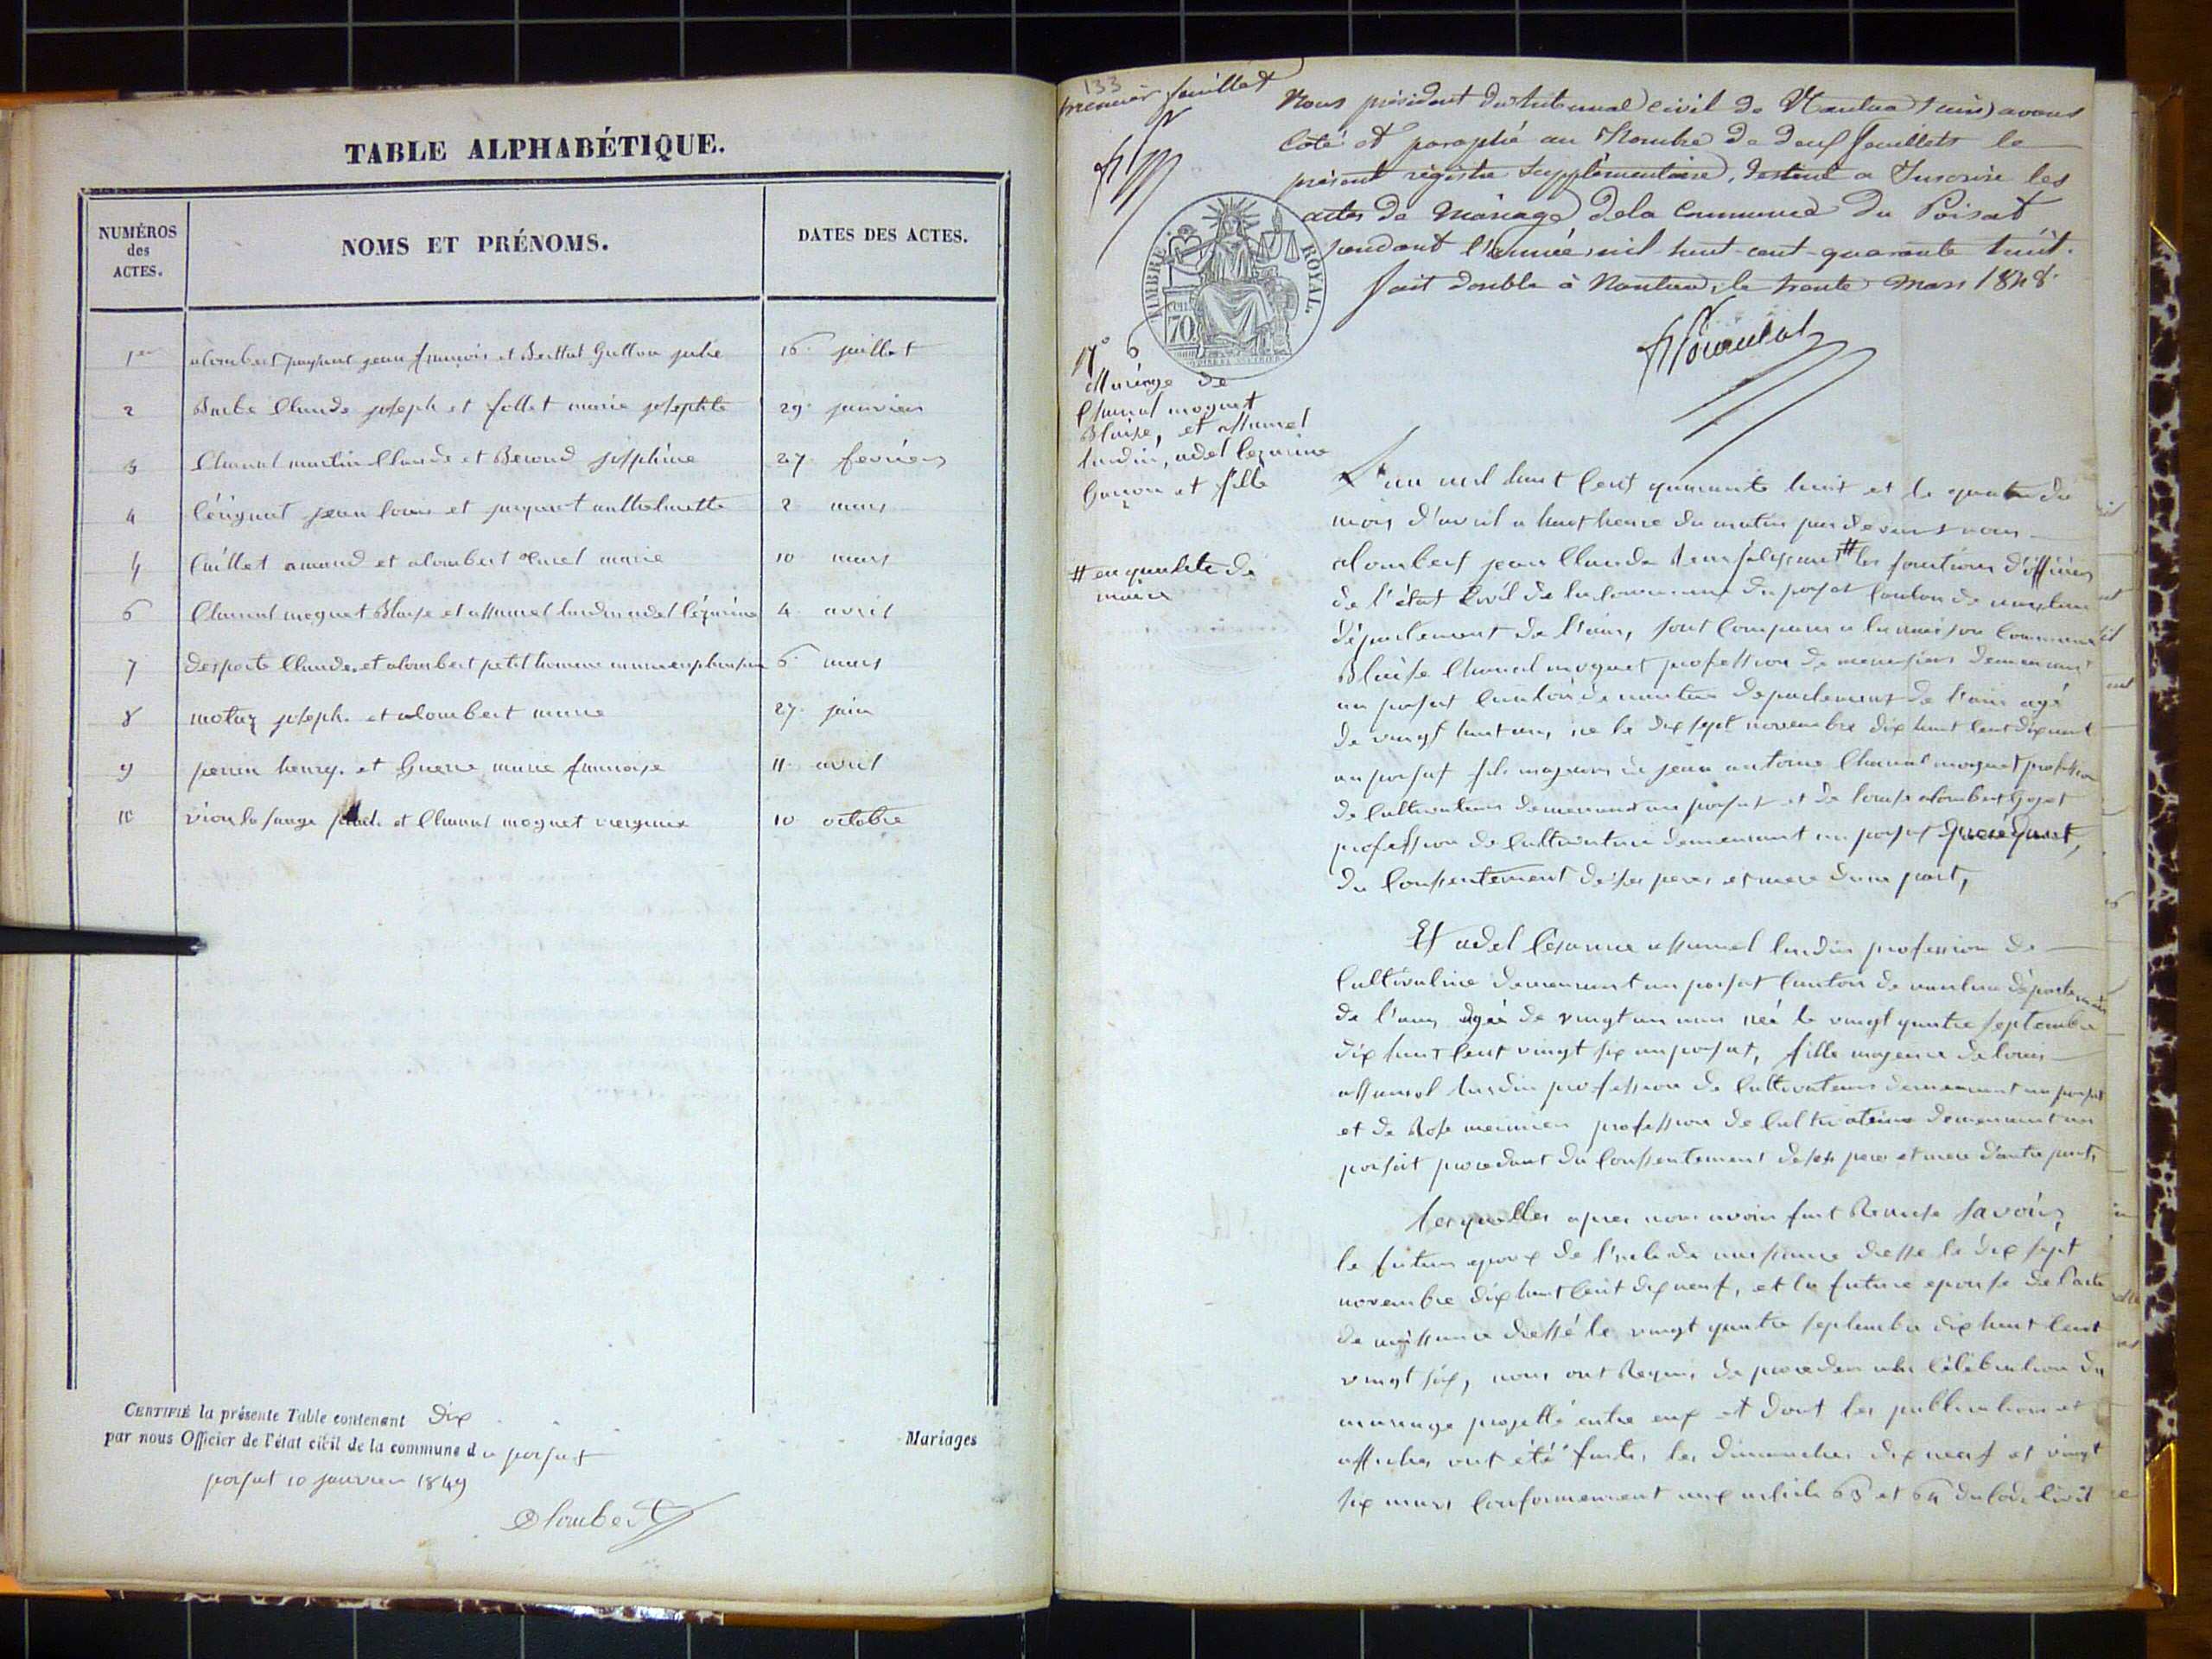 TABLE ALPHABÉTIQUE.
NUMÉROS
des
ACTES.
NOMS ET PRÉNOMS.
DATES DES ACTES.
1er alombert jean françois et julie 16 juillet
2 Barbe Claude joseph et follet marie josephte 29 janvier
3 Chanal martin Claude et Berond joséphine 27 fevrier
4 jean louis et anthelmette 2 mars
5 Cuillet amand et alombert marie 10 mars
6 Chanal moguet Blaise et assumel lurdin adel Cézarine 4 avril
7 desporte Claude et alombert petit marie 6 mars
8 joseph et alombert marie 27 juin
9 perrin henry. et Guerre marie francoise 11 avril
10 et Chanal moguet 10 octobre
CERTIFIÉ la présente Table contenant dix
par nous Officier de l'état civil de la commune du posat
posat 10 janvier 1849
Mariages
Alombert
133
premier feuillet
Nous président du tribunal civil de Nantua (ain) avons
Coté et paraphé au Nombre de deux feuillets le
présent régistre supplémentaire, destiné a Inscrire les
actes de Mariage de la Commune du Poisat
pendant l'année mil-huit-cent-quarante huit.
fait double à Nantua, le trente Mars 1848.
TIMBRE ROYAL.
70
N° 6
Mariage de
Chanal moguet
Blaise, et assumel
lurdin, adel Cezarine
Garçon et fille
# en qualité de
maire
L'an mil huit Cent quarante huit et le quatre du
mois d'avril a huit heure du matin par devant nous
alombert jean Claude # les fonctions d'officier
de l'état Civil de la Commune du posat Canton de nantua
département de l'ain, sont Comparu a la maison Commune
Blaise Chanal moguet profession de demeurant
au posat Canton de nantua departement de l'ain agé
de vingt huit ans, ne le dix sept novembre dix huit Cent dix neuf
au posat fils majeur de jean antoine Chanal moguet profession
de Cultivateur demeurant au posat et de louise alombert Goget
profession de Cultivatrice demeurant au posat
du Consentement de ses pere et mere d'une part,
Et adel Cesarine assumel lurdin profession de
Cultivatrice demeurant au posat Canton de nantua département
de l'ain, agée de vingt un ans née le vingt quatre septembre
dix huit Cent vingt six au posat, fille majeure de louis
assumel lurdin profession de Cultivateur demeurant au posat
et de Rose profession de Cultivatrice demeurant au
posat procedant du Consentement de ses pere et mere d'autre part,
lesquelles apres nous avoir fait Remise Savoir,
le futur epoux de l'acte de naissance dressé le dix sept
novembre dix huit Cent dix neuf, et la future epouse de l'acte
de naissance dressé le vingt quatre septembre dix huit Cent
vingt six, nous ont Requis de proceder a la Célébration du
mariage projetté entre eux et dont les publications et
affiches ont été faites les dimanches dix neuf et vingt
six mars Conformement aux article 63 et 64 du Code Civil